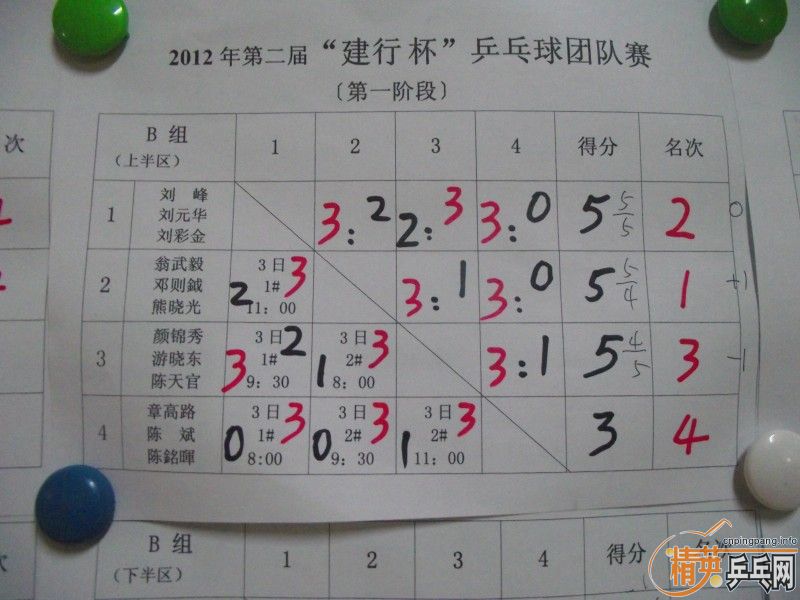 2012年第二届“建行杯”乒乓球团队赛
〔第一阶段〕
次
B 组
(上半区)
1 2 3 4 得分 名次
1
刘 峰
刘元华
刘彩金
3:2 2:3 3:0 5 5/5 2 0
2
翁武毅
邓则鉞
熊晓光
3日
1#
11:00
2 3
3:1 3:0 5 5/4 1 +1
3
颜锦秀
游晓东
陈天官
3日
1#
9:30
3 2
3日
2#
8:00
1 3
3:1 5 4/5 3 -1
4
章高路
陈 斌
陈銘暉
3日
1#
8:00
0 3
3日
2#
9:30
0 3
3日
2#
11:00
1 3
3 4
次
B 组
(下半区)
1 2 3 4 得分 名次
cnpingpang.info
精英乒乓网